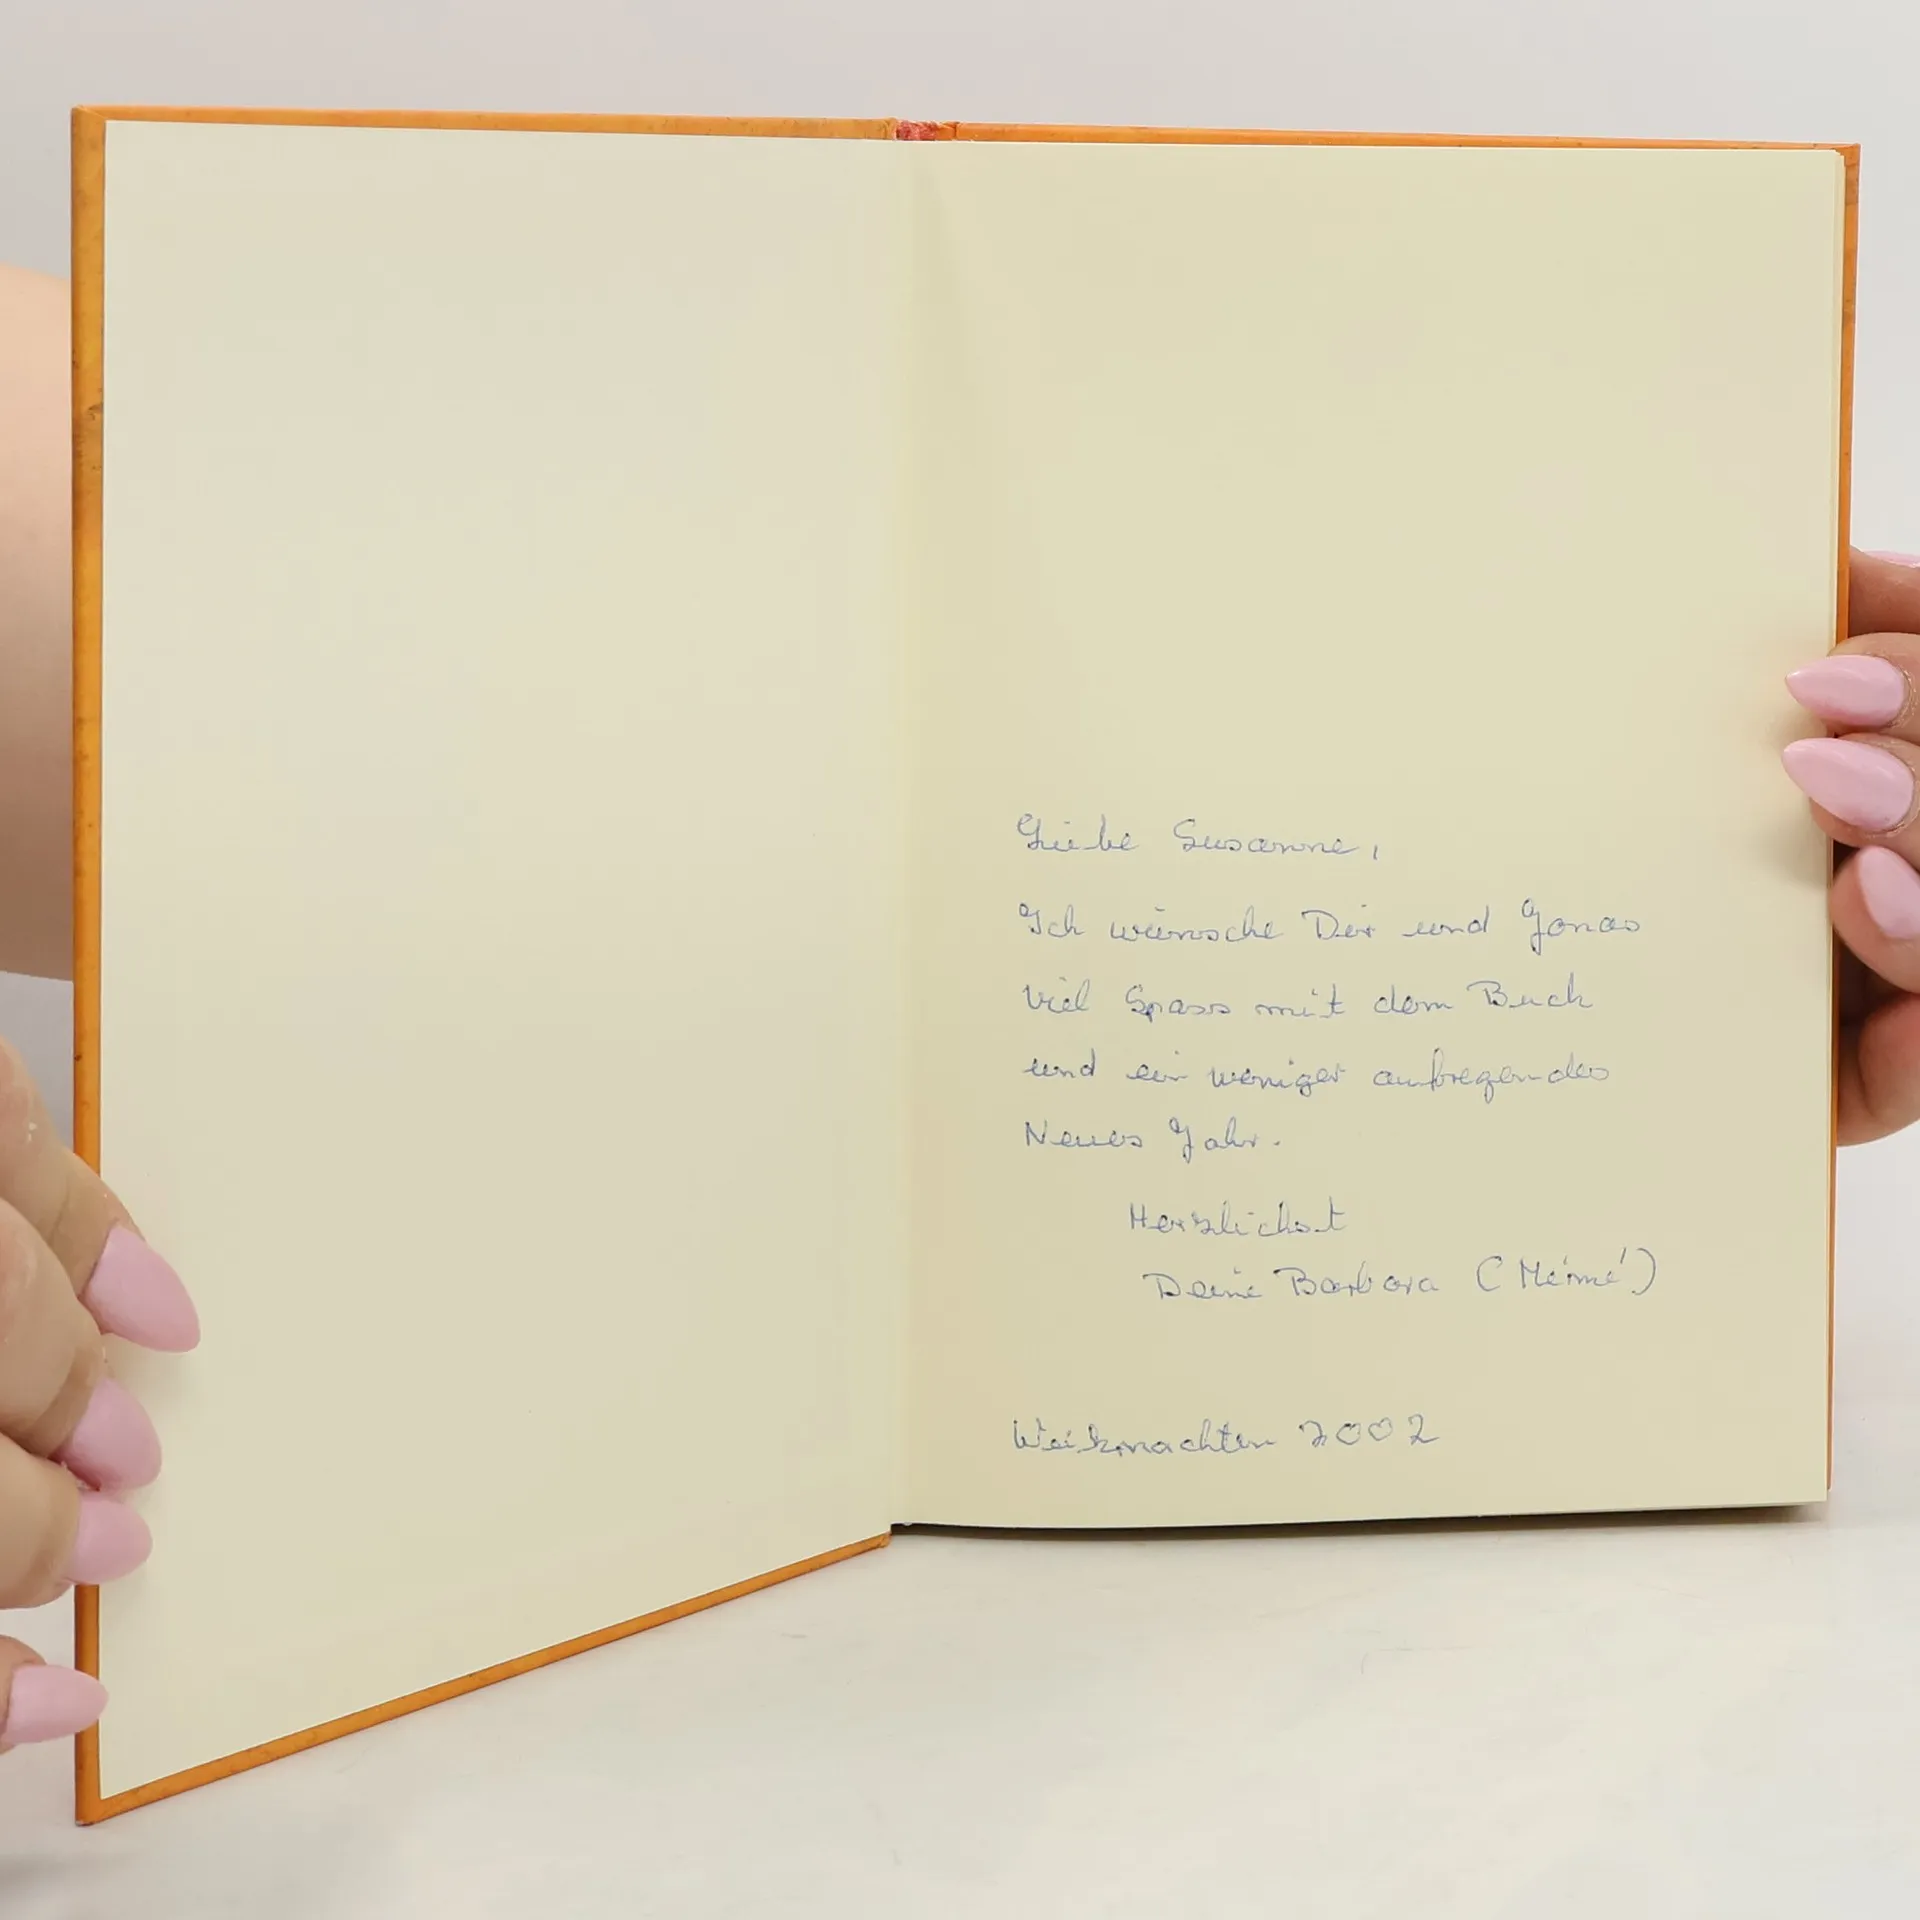 Liebe Susanne,
Ich wünsche Dir und Jonas
viel Spass mit dem Buch
und ein weniger aufregendes
Neues Jahr.
Herzlichst
Deine Barbara (Mémé)
Weihnachten 2002